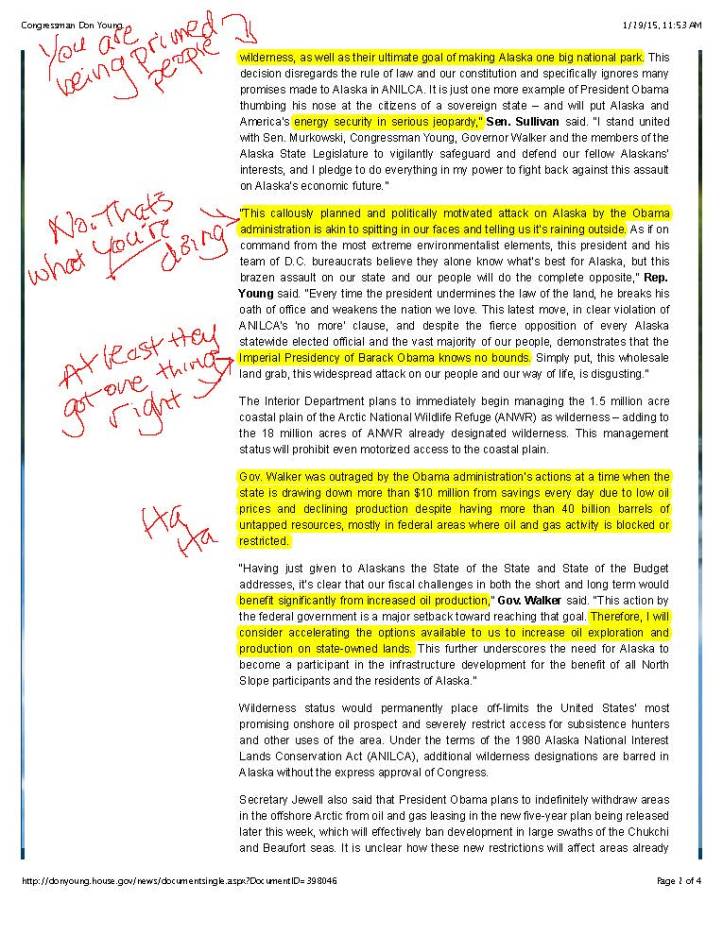 Congressman Don Young
1/29/15, 11:53 AM
You are
being primed
people
wilderness, as well as their ultimate goal of making Alaska one big national park. This
decision disregards the rule of law and our constitution and specifically ignores many
promises made to Alaska in ANILCA. It is just one more example of President Obama
thumbing his nose at the citizens of a sovereign state – and will put Alaska and
America's energy security in serious jeopardy," Sen. Sullivan said. "I stand united
with Sen. Murkowski, Congressman Young, Governor Walker and the members of the
Alaska State Legislature to vigilantly safeguard and defend our fellow Alaskans'
interests, and I pledge to do everything in my power to fight back against this assault
on Alaska's economic future."
No. Thats
what you're
doing
"This callously planned and politically motivated attack on Alaska by the Obama
administration is akin to spitting in our faces and telling us it's raining outside. As if on
command from the most extreme environmentalist elements, this president and his
team of D.C. bureaucrats believe they alone know what's best for Alaska, but this
brazen assault on our state and our people will do the complete opposite," Rep.
Young said. "Every time the president undermines the law of the land, he breaks his
oath of office and weakens the nation we love. This latest move, in clear violation of
ANILCA's 'no more' clause, and despite the fierce opposition of every Alaska
statewide elected official and the vast majority of our people, demonstrates that the
Imperial Presidency of Barack Obama knows no bounds. Simply put, this wholesale
land grab, this widespread attack on our people and our way of life, is disgusting."
At least they
got one thing
right
The Interior Department plans to immediately begin managing the 1.5 million acre
coastal plain of the Arctic National Wildlife Refuge (ANWR) as wilderness – adding to
the 18 million acres of ANWR already designated wilderness. This management
status will prohibit even motorized access to the coastal plain.
Gov. Walker was outraged by the Obama administration's actions at a time when the
state is drawing down more than $10 million from savings every day due to low oil
prices and declining production despite having more than 40 billion barrels of
untapped resources, mostly in federal areas where oil and gas activity is blocked or
restricted.
Ha
Ha
"Having just given to Alaskans the State of the State and State of the Budget
addresses, it's clear that our fiscal challenges in both the short and long term would
benefit significantly from increased oil production," Gov. Walker said. "This action by
the federal government is a major setback toward reaching that goal. Therefore, I will
consider accelerating the options available to us to increase oil exploration and
production on state-owned lands. This further underscores the need for Alaska to
become a participant in the infrastructure development for the benefit of all North
Slope participants and the residents of Alaska."
Wilderness status would permanently place off-limits the United States' most
promising onshore oil prospect and severely restrict access for subsistence hunters
and other uses of the area. Under the terms of the 1980 Alaska National Interest
Lands Conservation Act (ANILCA), additional wilderness designations are barred in
Alaska without the express approval of Congress.
Secretary Jewell also said that President Obama plans to indefinitely withdraw areas
in the offshore Arctic from oil and gas leasing in the new five-year plan being released
later this week, which will effectively ban development in large swaths of the Chukchi
and Beaufort seas. It is unclear how these new restrictions will affect areas already
http://donyoung.house.gov/news/documentsingle.aspx?DocumentID=398046
Page 2 of 4